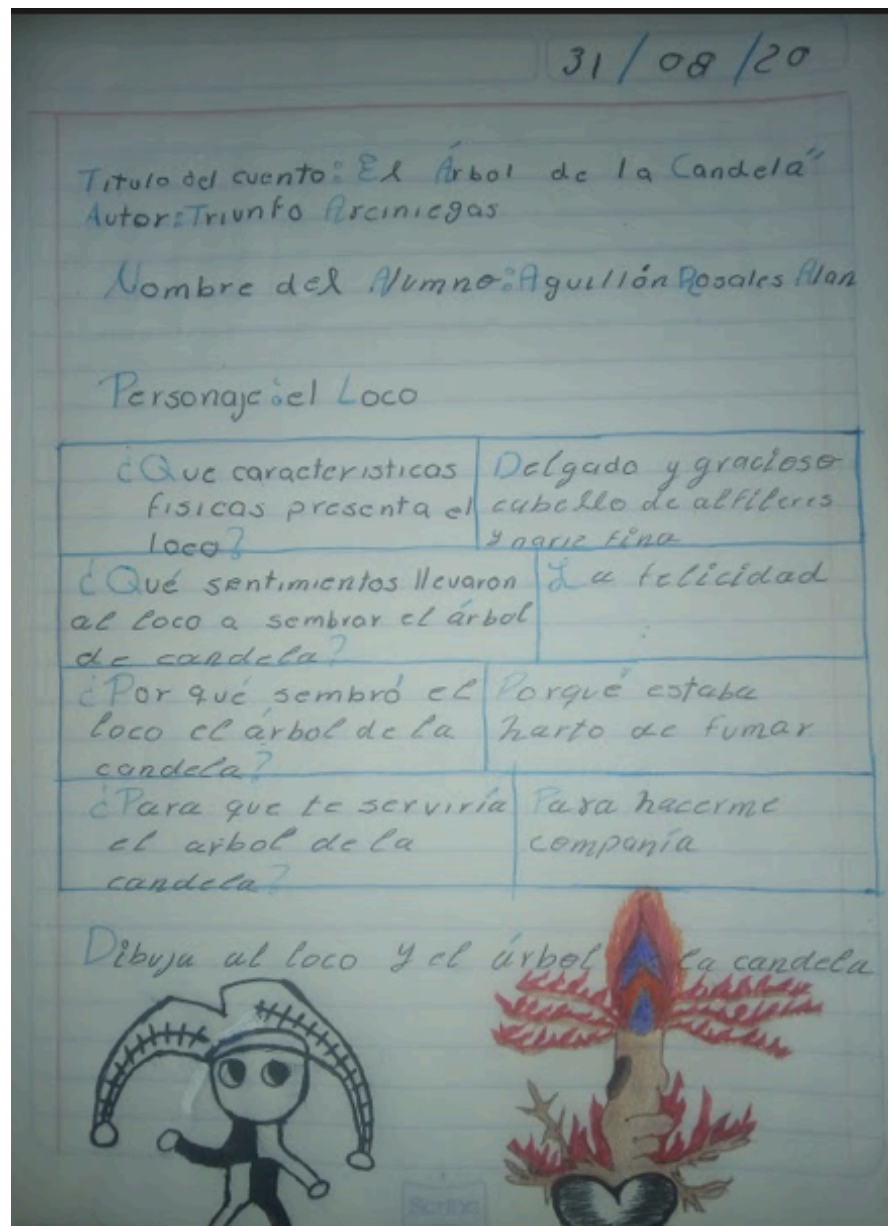 31/08/20
Titulo del cuento: El Árbol de la Candela"
Autor: Triunfo Arciniegas
Nombre del Alumno: Aguillón Rosales Alan
Personaje: el Loco
¿Que caracteristicas
fisicas presenta el
loco?
Delgado y gracioso
cabello de alfileres
y nariz fina
¿Qué sentimientos llevaron
al loco a sembrar el árbol
de candela?
La felicidad
¿Por qué sembró el
loco el árbol de la
candela?
Porqué estaba
harto de fumar
¿Para que te serviría
el arbol de la
candela?
Para hacerme
compania
Dibuja al loco y el árbol la candela
Scribe